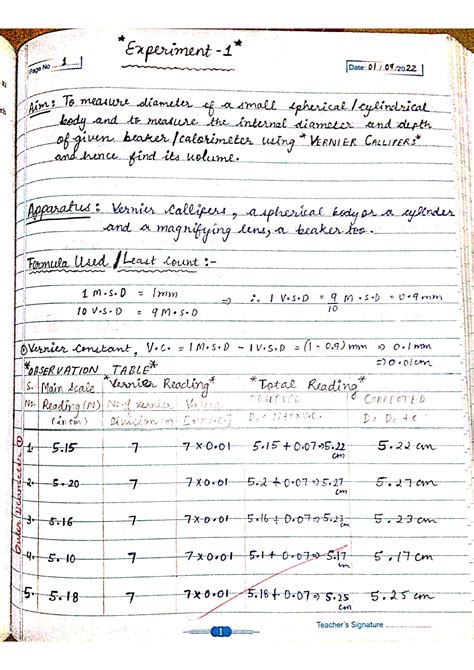 *Experiment-1*
Page No. 1
Date: 01/09/2022
Aim: To measure diameter of a small spherical/cylindrical
body and to measure the internal diameter and depth
of given beaker/calorimeter using *VERNIER CALLIPERS*
and hence find its volume.
Apparatus: Vernier Callipers, a spherical body or a cylinder
and a magnifying lens, a beaker too.
Formula Used / Least count :-
1 M.S.D = 1mm ⇒ ∴ 1 V.S.D = 9/10 M.S.D = 0.9 mm
10 V.S.D = 9 M.S.D
Vernier Constant, V.C. = 1 M.S.D - 1 V.S.D = (1-0.9) mm ⇒ 0.1 mm
⇒ 0.01cm
*OBSERVATION TABLE*
S. Main Scale *Vernier Reading* *Total Reading*
No. Reading (N) No. of vernier OBSERVED CORRECTED
(in cm) Division (n)
1. 5.15 7 7x0.01 5.15+0.07⇒5.22 cm 5.22 cm
2. 5.20 7 7x0.01 5.2+0.07⇒5.27 cm 5.27 cm
3. 5.16 7 7x0.01 5.16+0.07⇒5.23 cm 5.23 cm
4. 5.10 7 7x0.01 5.1+0.07⇒5.17 cm 5.17 cm
5. 5.18 7 7x0.01 5.18+0.07⇒5.25 cm 5.25 cm
1
Teacher's Signature